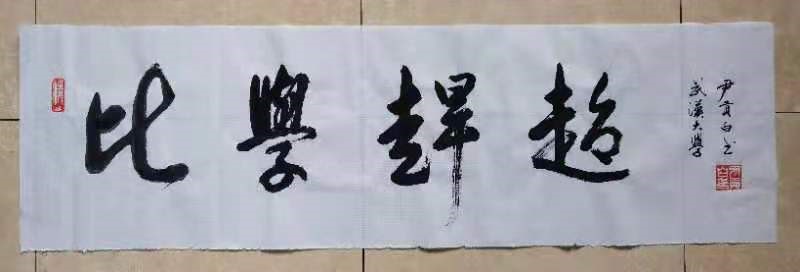 比學趕超
尹白书
武漢大學